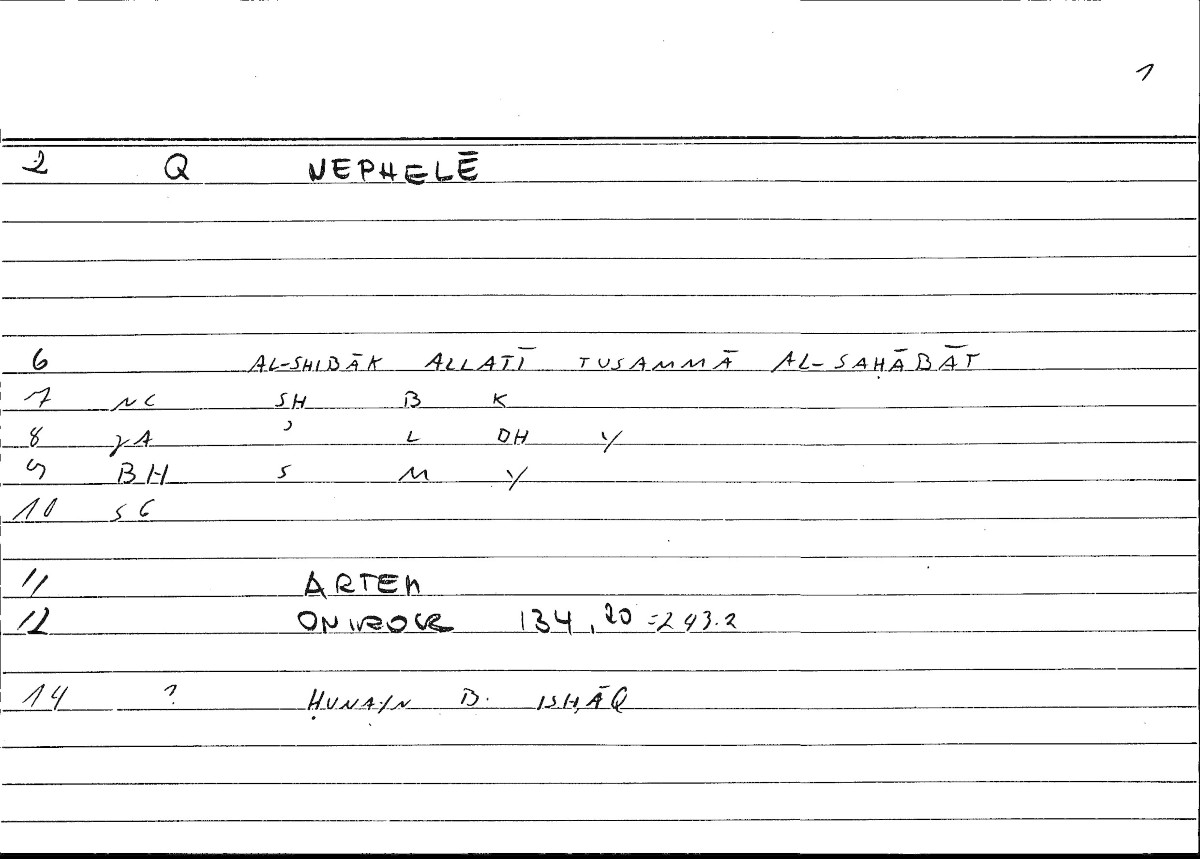 1
2 Q NEPHELĒ
6 AL-SHIBĀK ALLATĪ TUSAMMĀ AL-SAḤĀBĀT
7 NC SH B K
8 γA ʾ L DH Y
9 BH S M Y
10 SG
11 ARTEM
12 ONIROCR 134,20 =243.2
14 ? ḤUNAYN B. ISḤĀQ